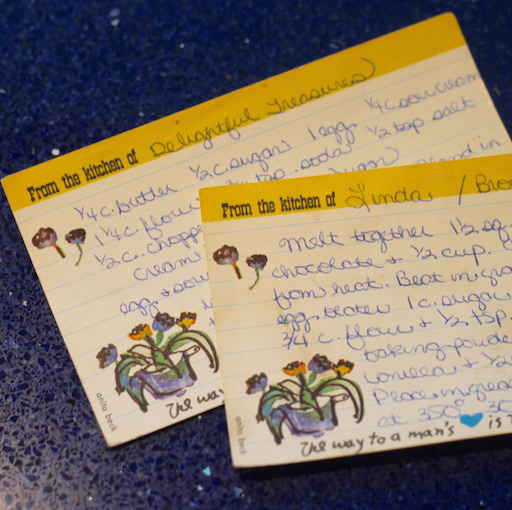 From the kitchen of Delightful Treasures
1/4 c. butter 1/2 c. sugar 1 egg 1/4 c. sour cream
1 1/4 c. flour tsp. soda 1/2 tsp salt
1/2 c. chopped
cream
egg & sour
anita beck
The way
From the kitchen of Linda / Bro
Melt together 1 1/2 sq.
chocolate & 1/2 cup.
from heat. Beat in
egg beater 1 c. sugar
3/4 c. flour & 1/2 tsp.
baking powder
vanilla & 1/2
Place in
at 350° 30
anita beck
The way to a man's is